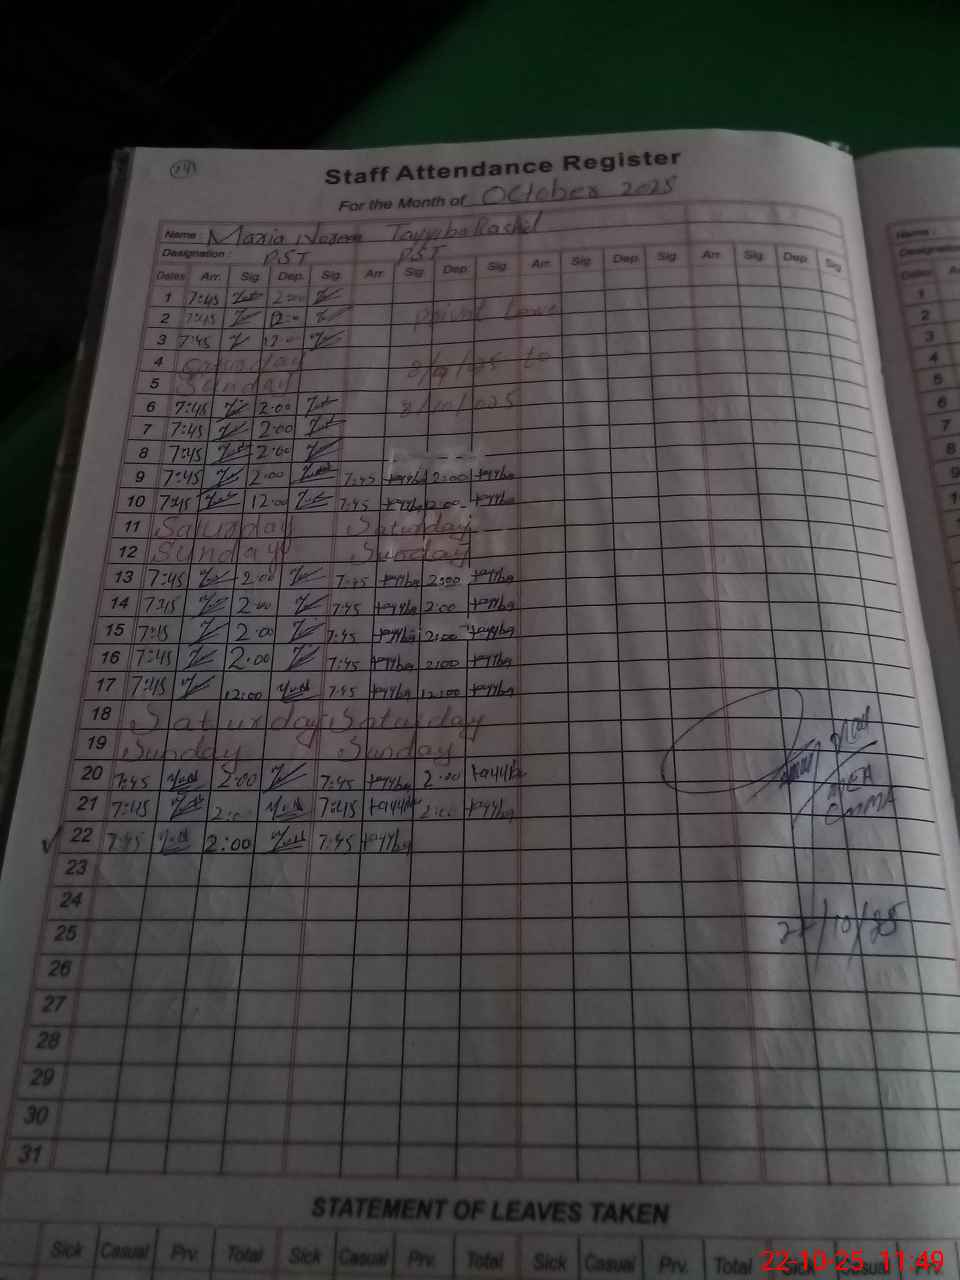 24
Staff Attendance Register
For the Month of October 2025
Name : Maria Noreen Tayyiba Rashid
Designation : PST PST
Dates Arr. Sig. Dep. Sig. Arr. Sig. Dep. Sig. Arr. Sig. Dep. Sig. Arr. Sig. Dep. Sig
1 7:45 2:00
2 7:45 12:00 Privat Leave
3 7:45 12:00
4 Saturday 8/9/25 to
5 Sunday
6 7:45 2:00 8/10/025
7 7:45 2:00
8 7:45 2:00
9 7:45 2:00 7:45 tayyba 2:00 tayyba
10 7:45 12:00 7:45 tayyba 12:00 tayyba
11 Saturday Saturday
12 Sunday Sunday
13 7:45 2:00 7:45 tayyba 2:00 tayyba
14 7:45 2:00 7:45 tayyba 2:00 tayyba
15 7:45 2:00 7:45 tayyba 2:00 tayyba
16 7:45 2:00 7:45 tayyba 2:00 tayyba
17 7:45 12:00 7:45 tayyba 12:00 tayyba
18 Saturday Saturday
19 Sunday Sunday
20 7:45 2:00 7:45 tayyba 2:00 tayyba
21 7:45 2:00 7:45 tayyba 2:00 tayyba
22 7:45 2:00 7:45 tayyba
MEA
EMMA
23
24
25 22/10/25
26
27
28
29
30
31
STATEMENT OF LEAVES TAKEN
Sick Casual Prv. Total Sick Casual Prv. Total Sick Casual Prv. Total Sick Casual Prv.
22-10-25 11:49
Name :
Designation
Dates
1
2
3
4
5
6
7
8
9